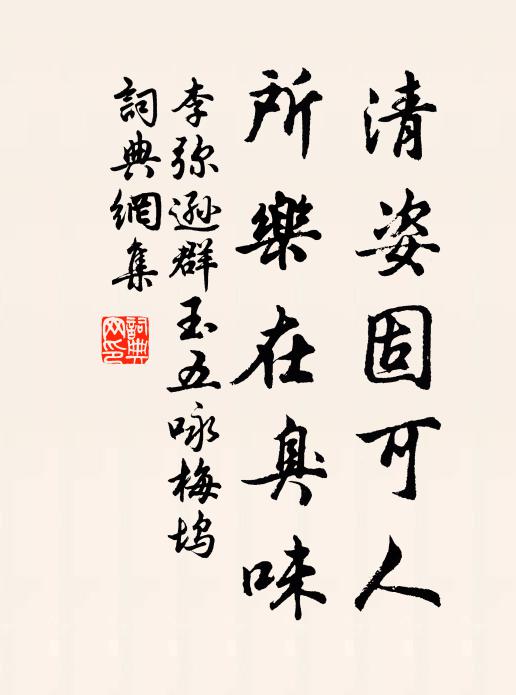 清姿固可人
所樂在臭味
李弥遜群玉五咏梅塢
詞典網集
詞典網印